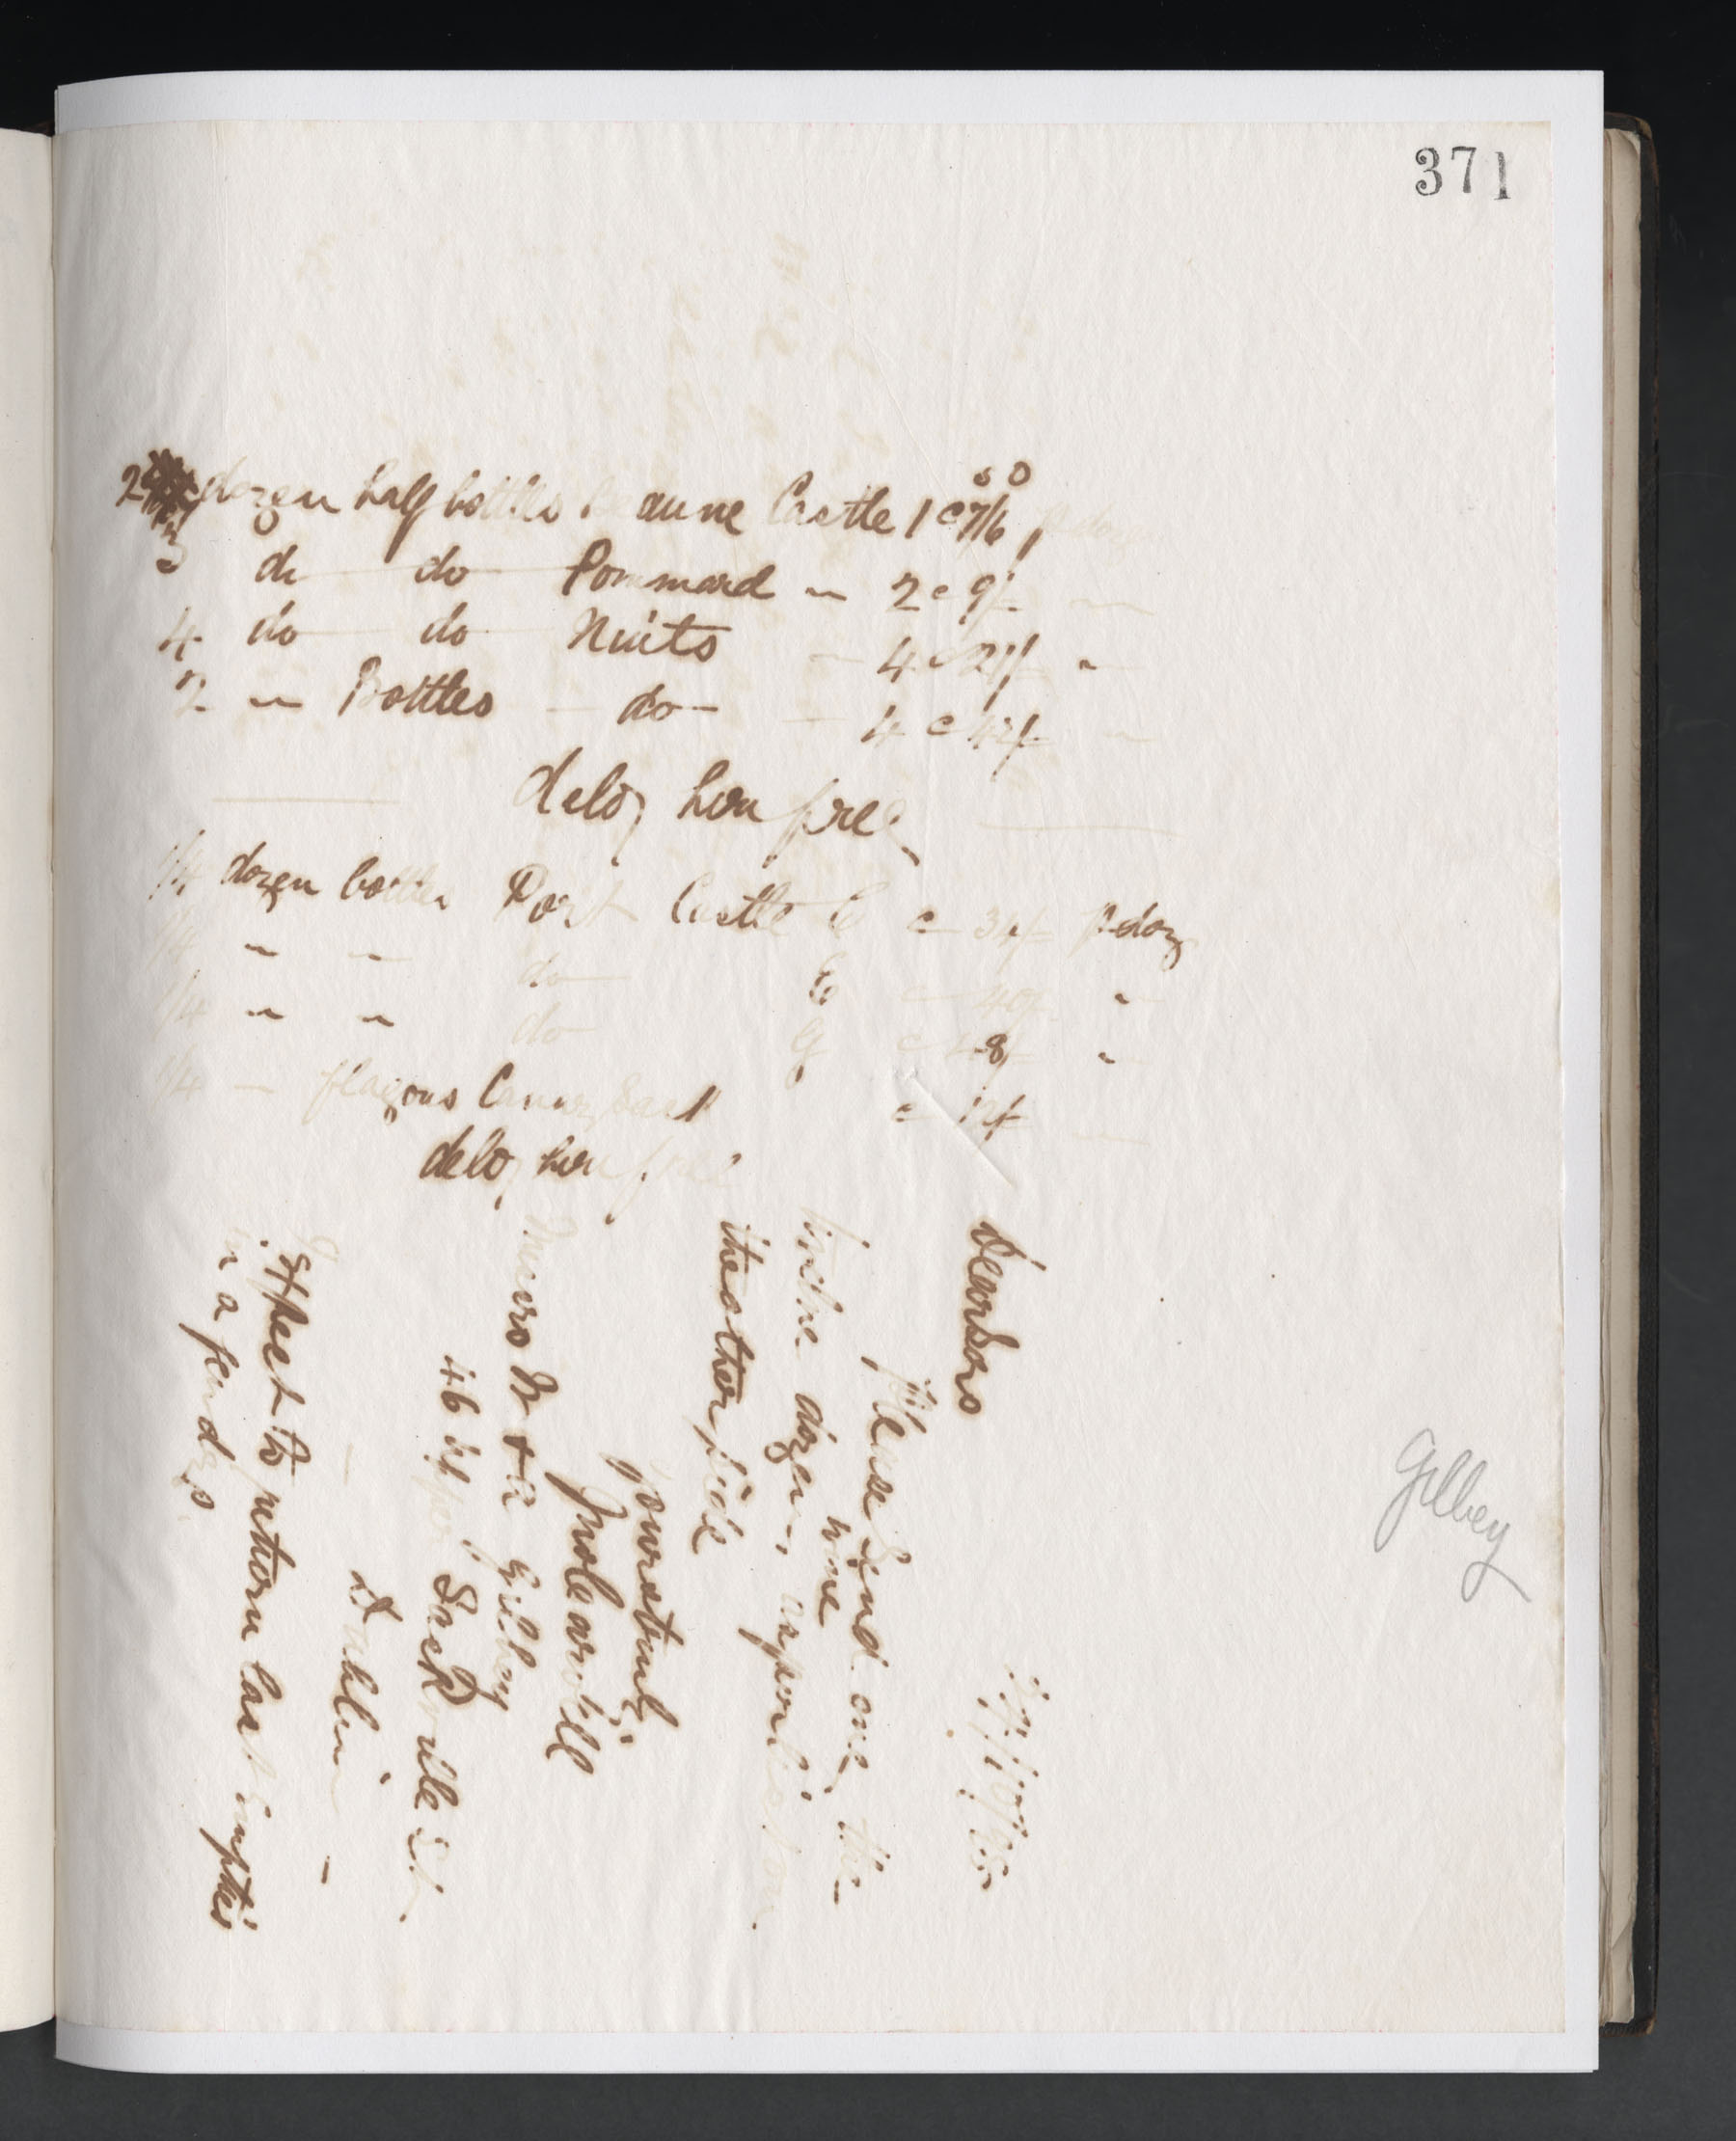 371
2 dozen half bottles Beaune Castle 1 @ 7/6 p doz
s D
3 do do Pommard " 2 @ 9/-
4 do do Nuits 4 @ 21/- "
2 " Bottles do 4 @ 42/-
deld here free
1/4 dozen bottles Port Castle C @ 34/- p doz
1/4 " " do E @ 40/- "
1/4 " " do G @ 48/- "
1/4 flagons Canary Sack @ 12/-
deld here free
Dear Sirs
Please send one the
wine
twelve dozen, as per list on
the other side
yours truly
Molearville
Messrs W & A Gilbey
46 Upper Sackville St
Dublin
I expect to return last empties
in a few days.
Gilbey